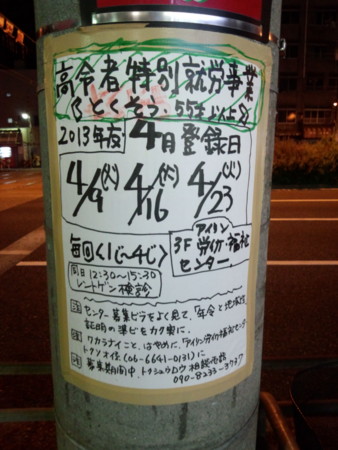 高令者特別就労事業
(とくそう・55才以上)
2013年度 4月登録日
4/9(火) 4/16(火) 4/23(火)
毎回<1じ~4じ>
アイリン
3F 労仂・福祉
センター
同日12:30~15:30
レントゲン検診
注 センター募集ビラをよく見て、「年令と地域性」
証明の準ビをカク実に。
注 ワカラナイことは、はやめに、「アイリン労仂福祉センター
トクソオ係(06-6641-0131)に
募集期間中、トクシュウロウ相談电話
090-8233-3737